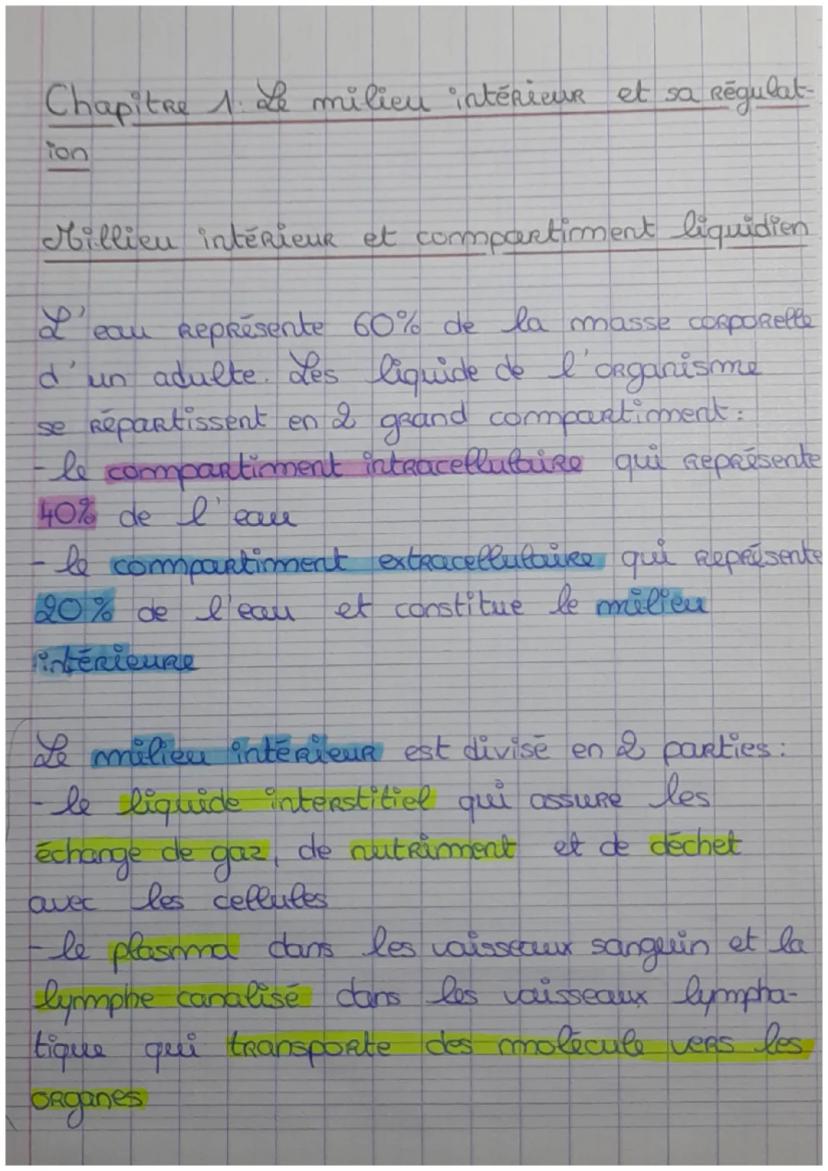 Chapitre 1. Le milieu intérieur et sa régulat-
ion
Millieu intérieur et compartiment liquidien
L'eau représente 60% de la masse corporelle
d'un adulte. Les liquide de l'organisme
se répartissent en 2 grand compartiment :
- le compartiment intracellulaire qui représente
40% de l'eau
- le compartiment extracellulaire qui représente
20% de l'eau et constitue le milieu
intérieure
Le milieu intérieur est divisé en 2 parties :
- le liquide interstitiel qui assure les
échange de gaz, de nutriment et de déchet
avec les cellules
- le plasma dans les vaisseaux sanguin et la
lymphe canalisé dans les vaisseaux lympha-
tique qui transporte des molécule vers les
organes